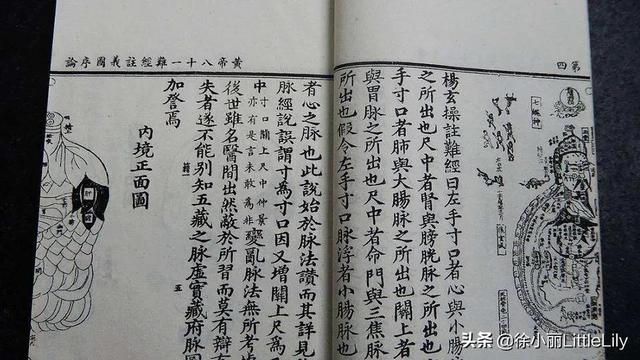 第四
楊玄操註難經曰左手寸口者心與小腸
之所出也尺中者腎與膀胱脈之所出也
手寸口者肺與大腸脈之所出也關上者
與胃脈之所出也尺中者命門與三焦脈
所出也假令左手寸口脈浮者小腸脈也
黃帝八十一難經註義圖序論
者心之脈也此說始於脈法讚而其詳見
脈經說誤謂寸為寸口因又增關上尺為
中寸口關上尺中仲景亦有是言未敢為非變亂脈法無所考
後世雖名醫間出然蔽於所習而莫有辯
失者遂不能別知五藏之脈虛實藏府脈圖
加詧焉
五
內境正面圖
头条 @徐小丽LittleLily